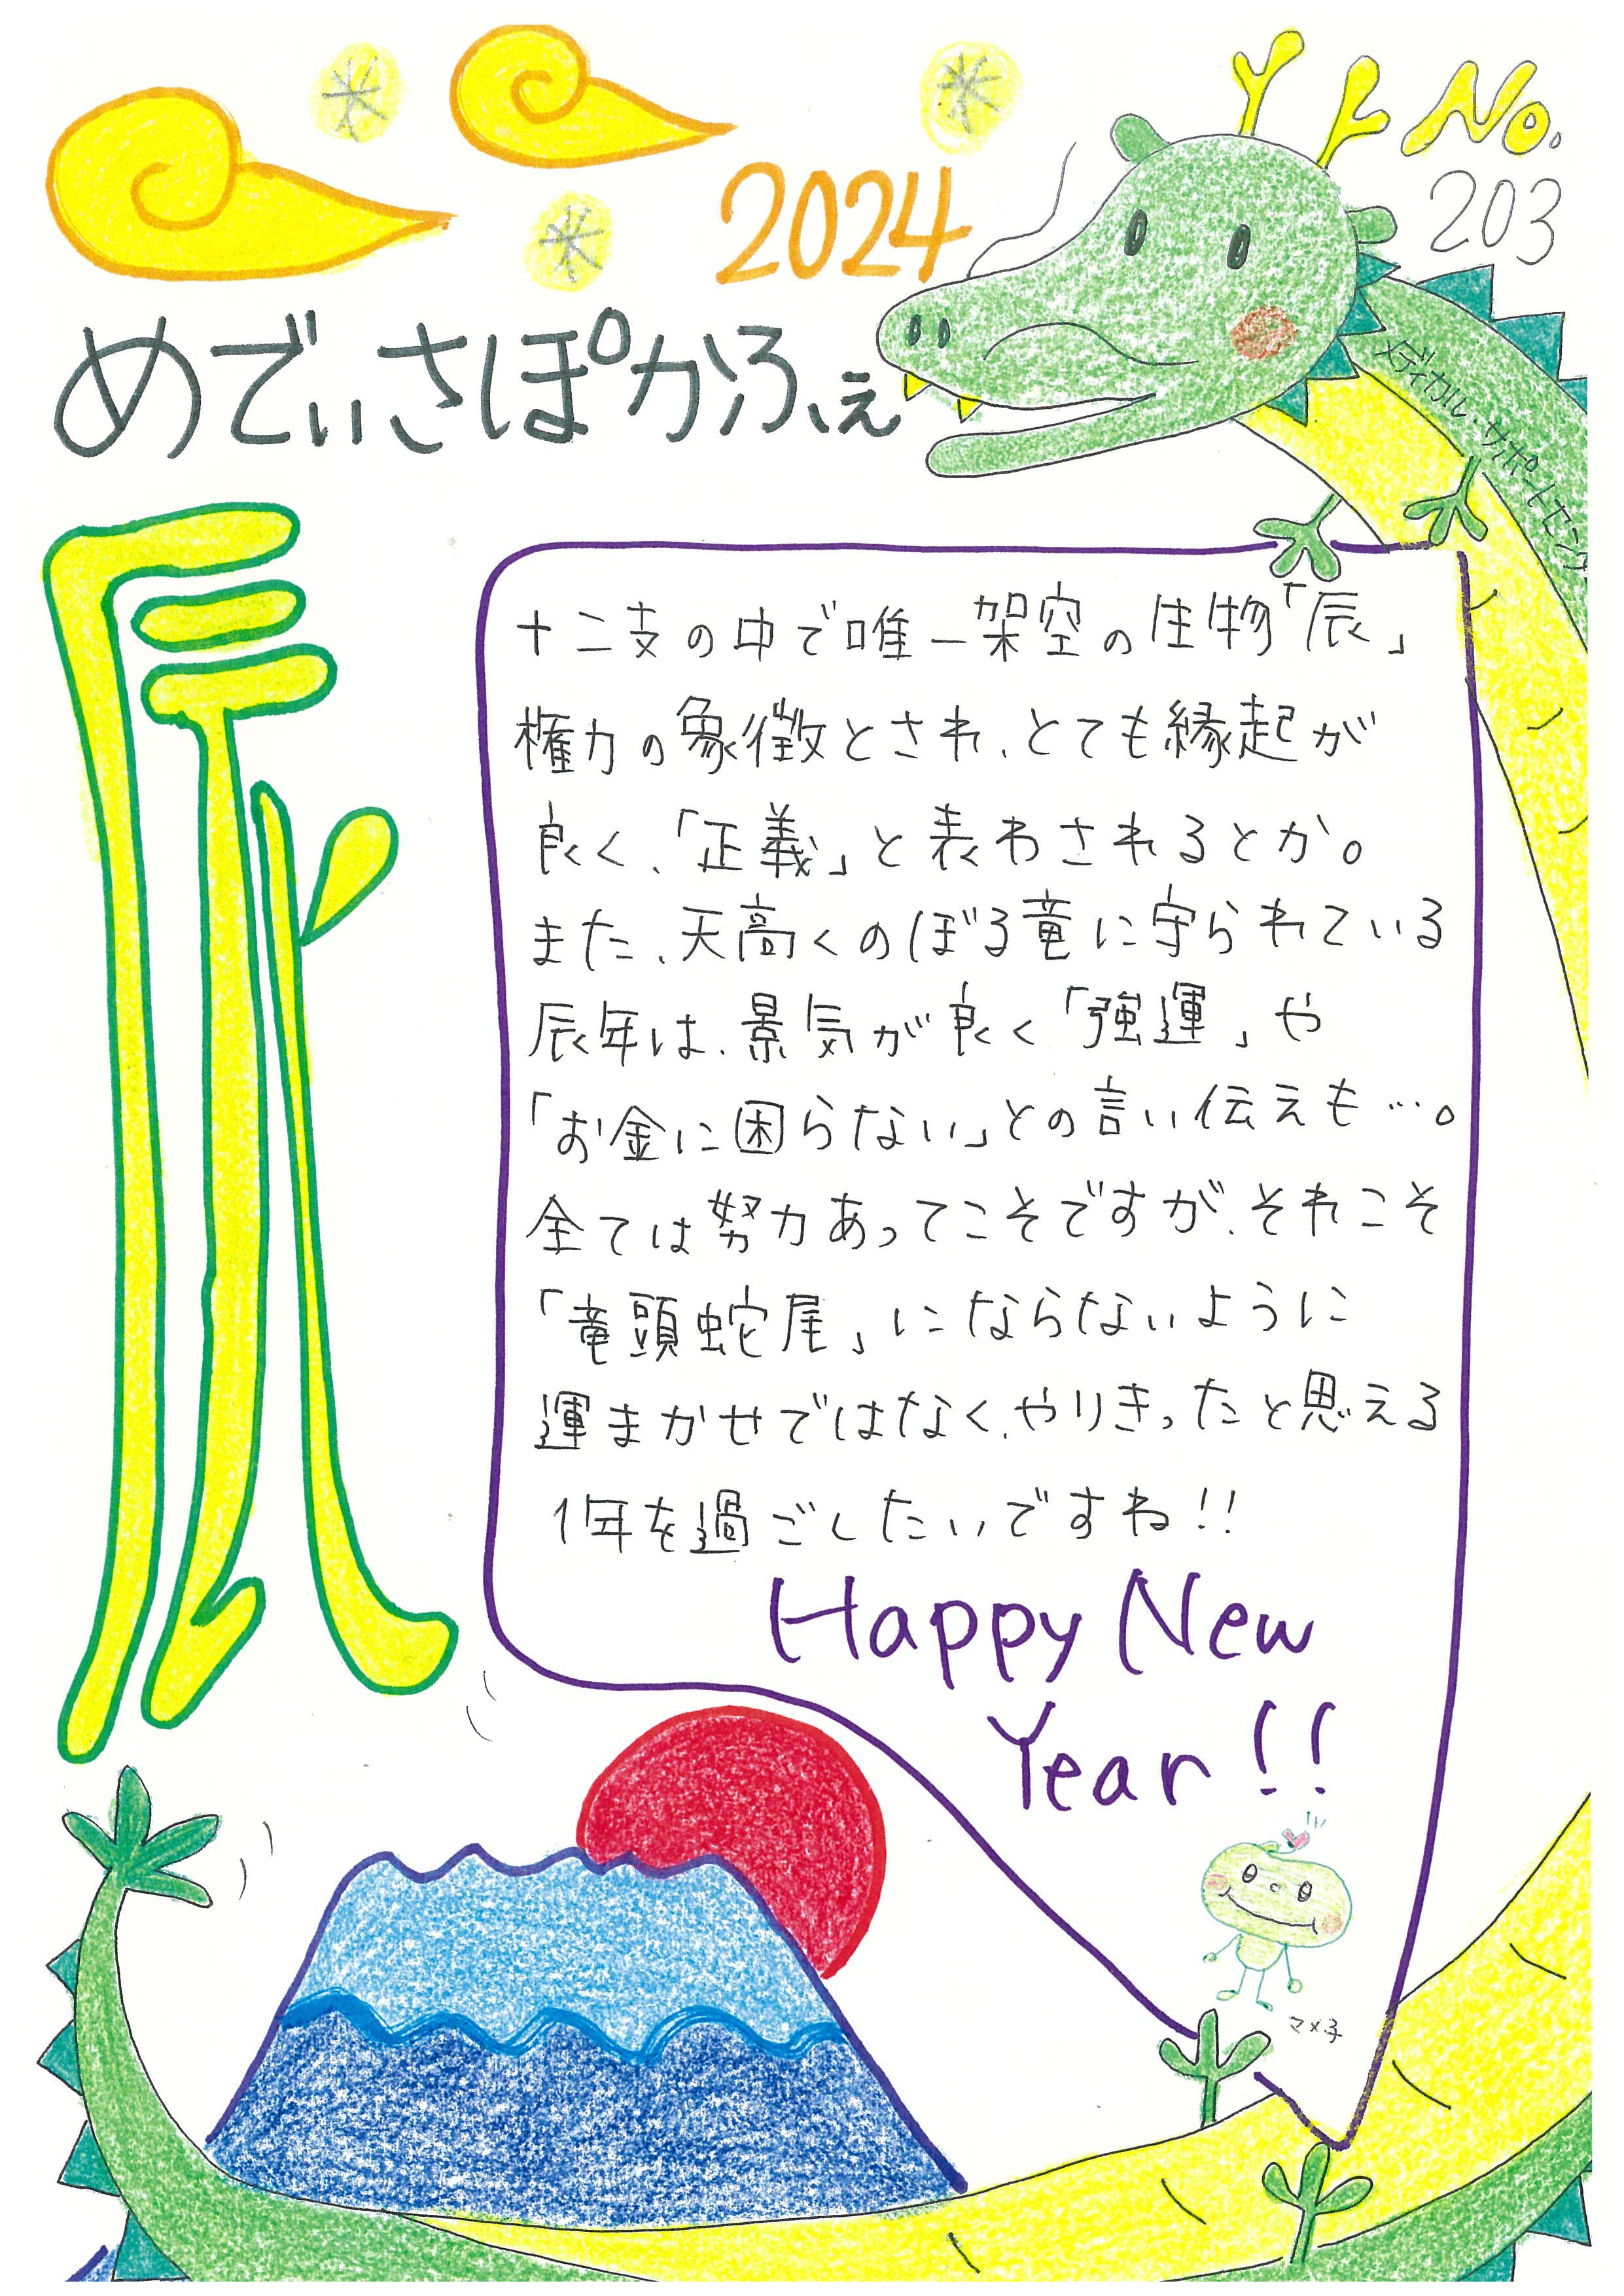 No.
203
2024
めでぃさぽかふぇ
メディカル・サポートセンター
辰
十二支の中で唯一架空の生物「辰」
権力の象徴とされ、とても縁起が
良く、「正義」と表わされるとか。
また、天高くのぼる竜に守られている
辰年は、景気が良く「強運」や
「お金に困らない」との言い伝えも…。
全ては努力あってこそですが、それこそ
「竜頭蛇尾」にならないように
運まかせではなく、やりきったと思える
1年を過ごしたいですね!!
Happy New
Year!!
マメ子